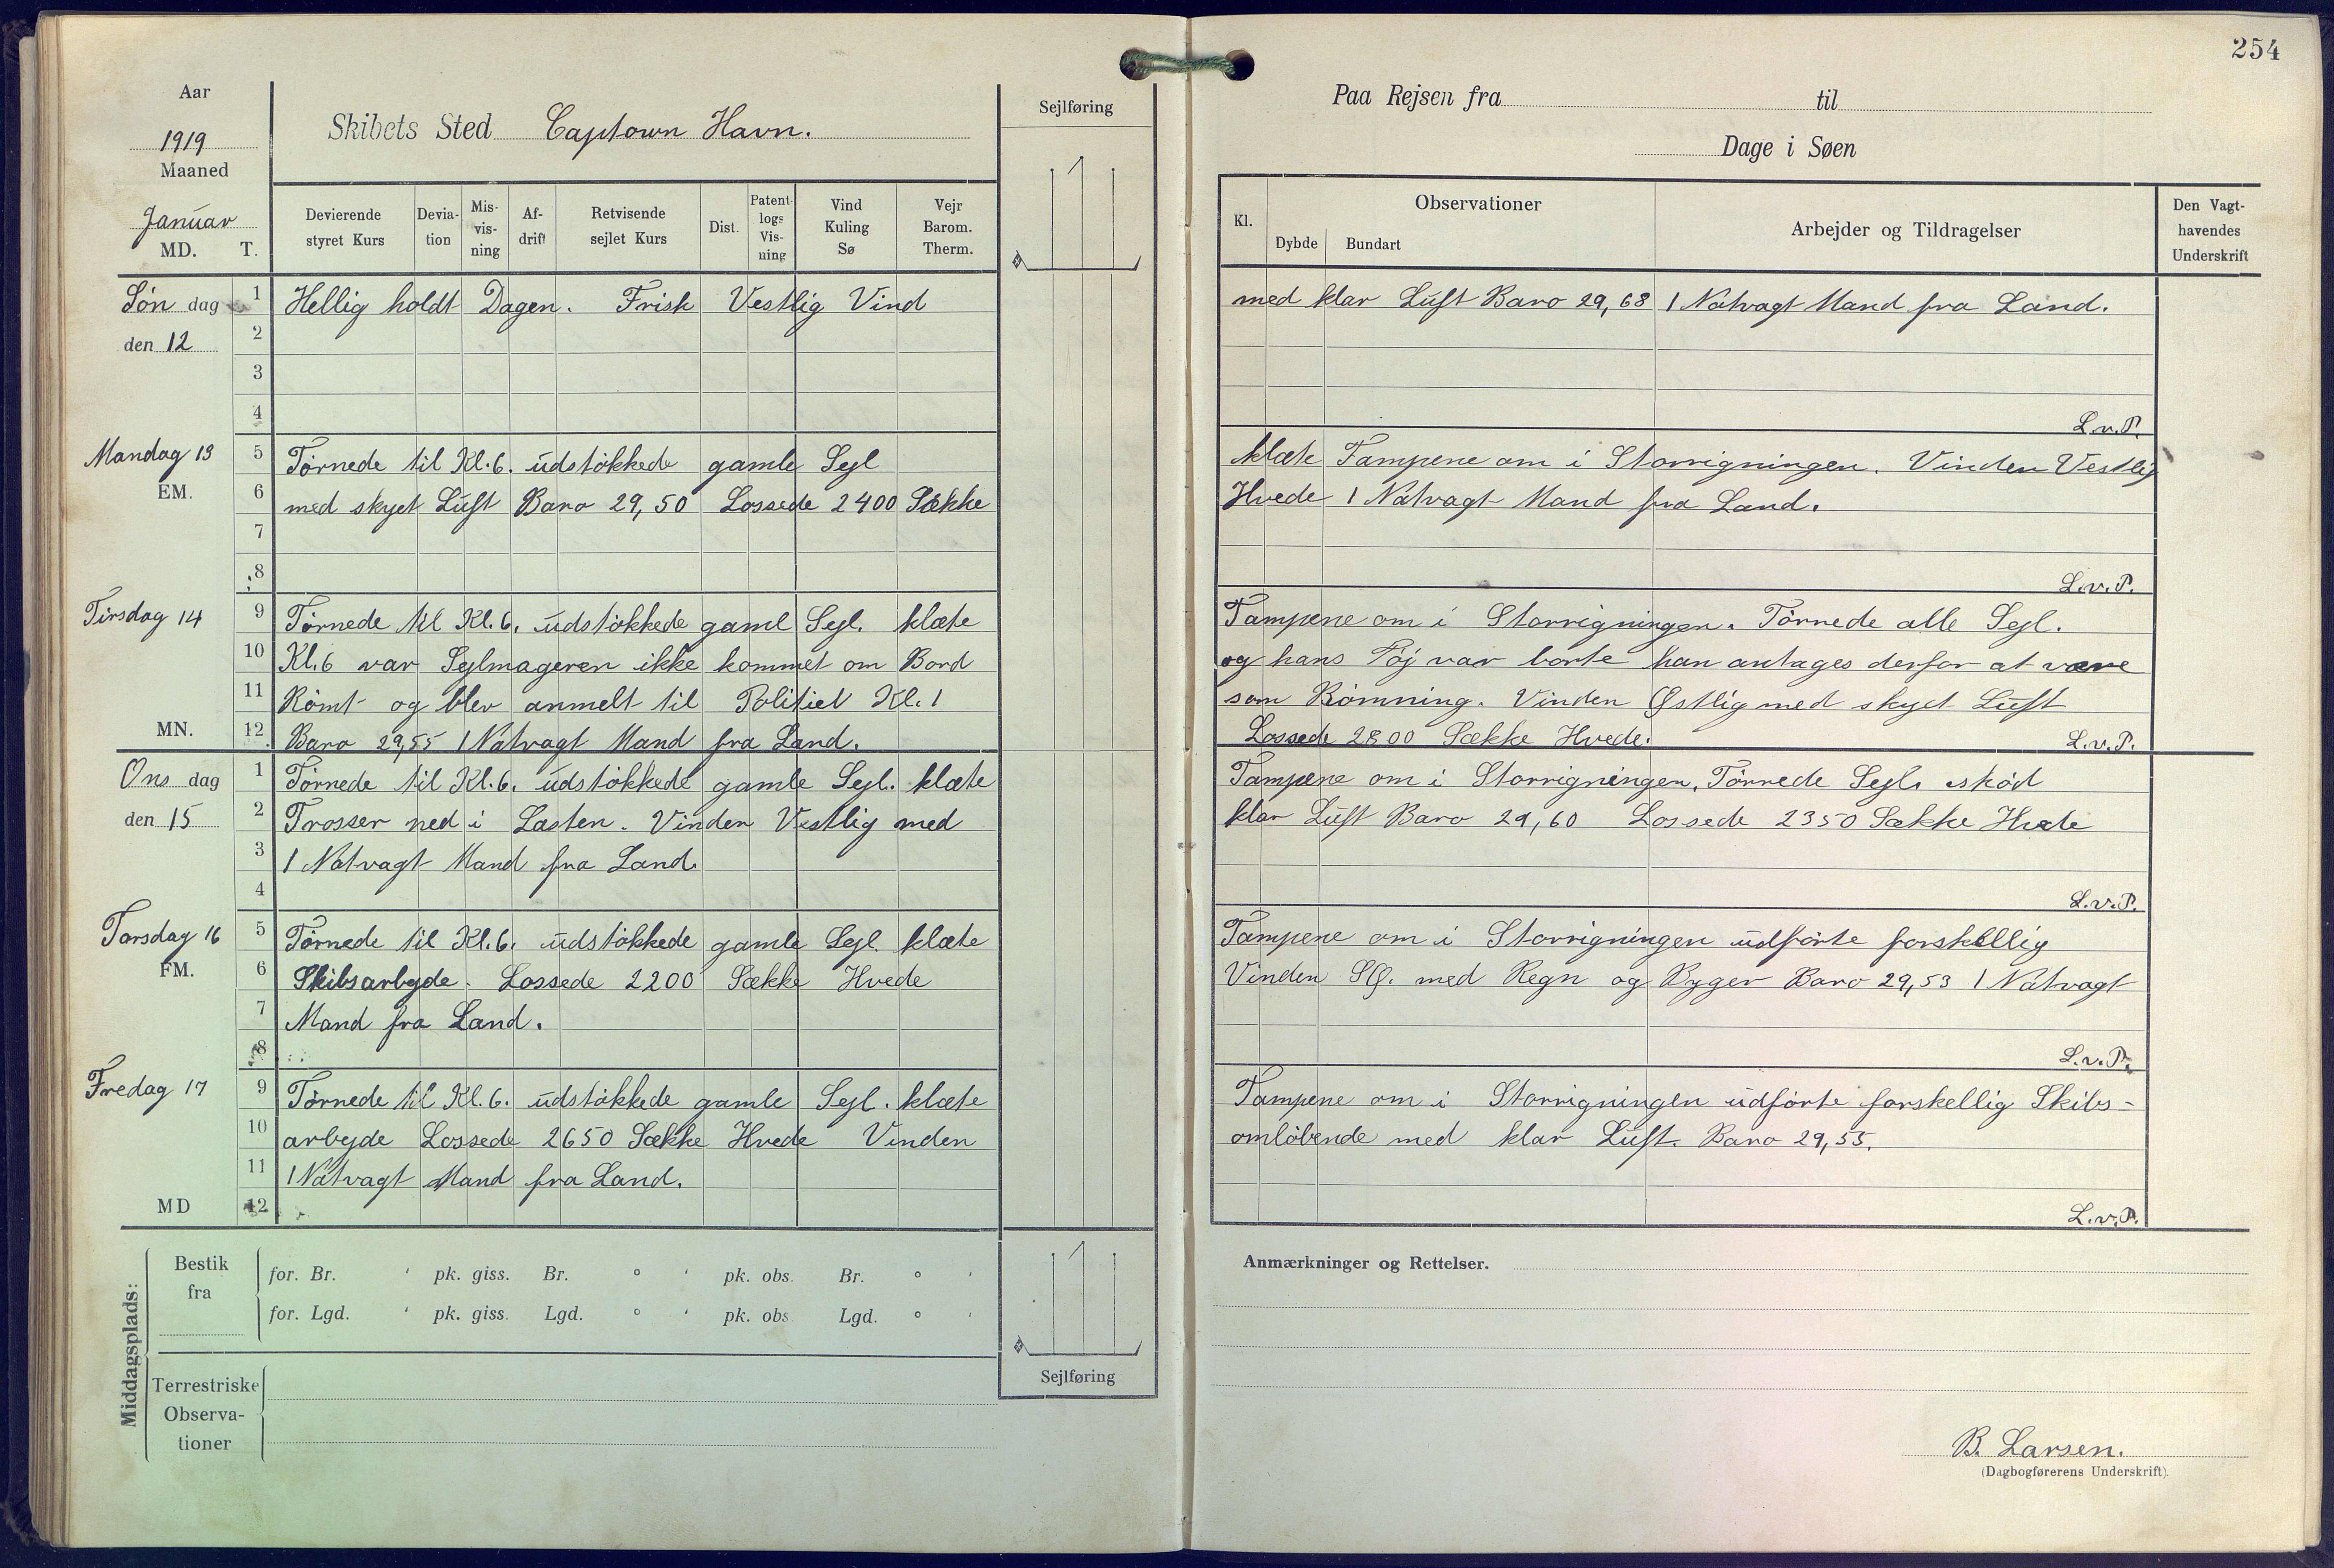 254
Aar
1919
Maaned
Januar
MD. T.
Skibets Sted Captown Havn.
Sejlføring
Devierende styret Kurs
Devia-tion
Mis-vis-ning
Af-drift
Retvisende sejlet Kurs
Dist.
Patent-logs Vis-ning
Vind Kuling Sø
Vejr Barom. Therm.
Paa Rejsen fra til
Dage i Søen
Kl.
Observationer
Dybde Bundart
Arbejder og Tildragelser
Den Vagt-havendes Underskrift
Søn dag
den 12
1 Hellig holdt Dagen. Frisk Vestlig Vind med klar Lüft Baro 29,68 1 Natvagt Mand fra Land.
2
3
4 L.v.P.
Mandag 13
EM.
5 Törnede til Kl. 6. üdstökkede gamle Sejl klæte Tampene om i Storrigningen. Vinden Vestlig
6 med skyet Lüft Baro 29,50 Lossede 2400 Sække Hvede 1 Natvagt Mand fra Land.
7
8 L.v.P.
Tirsdag 14
9 Törnede til Kl. 6. üdstökkede gaml Sejl. klæte Tampene om i Storrigningen. Törnede alle Sejl.
10 Kl. 6 var Sejlmageren ikke kommet om Bord og hans Töj var borte han antages derfor at være
11 Römt og blev anmelt til Politiet Kl. 1 som Römning. Vinden Østlig med skyet Lüft
MN.
12 Baro 29,55 1 Natvagt Mand fra Land. Lossede 2800 Sække Hvede. L.v.P.
Ons dag
den 15
1 Törnede til Kl. 6. üdstökkede gamle Sejl. klæte Tampene om i Storrigningen, Törrede Sejl, skød
2 Trosser ned i Lasten. Vinden Vestlig med klar Lüft Baro 29,60 Lossede 2350 Sække Hvede
3 1 Natvagt Mand fra Land.
4 L.v.P.
Torsdag 16
FM.
5 Törnede til Kl. 6. üdstökkede gamle Sejl klæte Tampene om i Storrigningen üdførte forskellig
6 Skibsarbejde. Lossede 2200 Sække Hvede Vinden SØ. med Regn og Byger Baro 29,53 1 Natvagt
7 Mand fra Land.
8 L.v.P.
Fredag 17
9 Törnede til Kl. 6. üdstökkede gamle Sejl. klæte Tampene om i Storrigningen üdførte forskellig Skibs-
10 arbejde Lossede 2650 Sække Hvede Vinden omløbende med klar Lüft. Baro 29,55.
11 1 Natvagt Mand fra Land.
MD
12 L.v.P.
Middagsplads:
Bestik fra
for. Br. ' pk. giss. Br. ° ' pk. obs. Br. ° '
for. Lgd. ' pk. giss. Lgd. ° ' pk. obs. Lgd. ° '
Terrestriske Observa-tioner
Sejlføring
Anmærkninger og Rettelser.
B. Larsen.
(Dagbogførerens Underskrift)